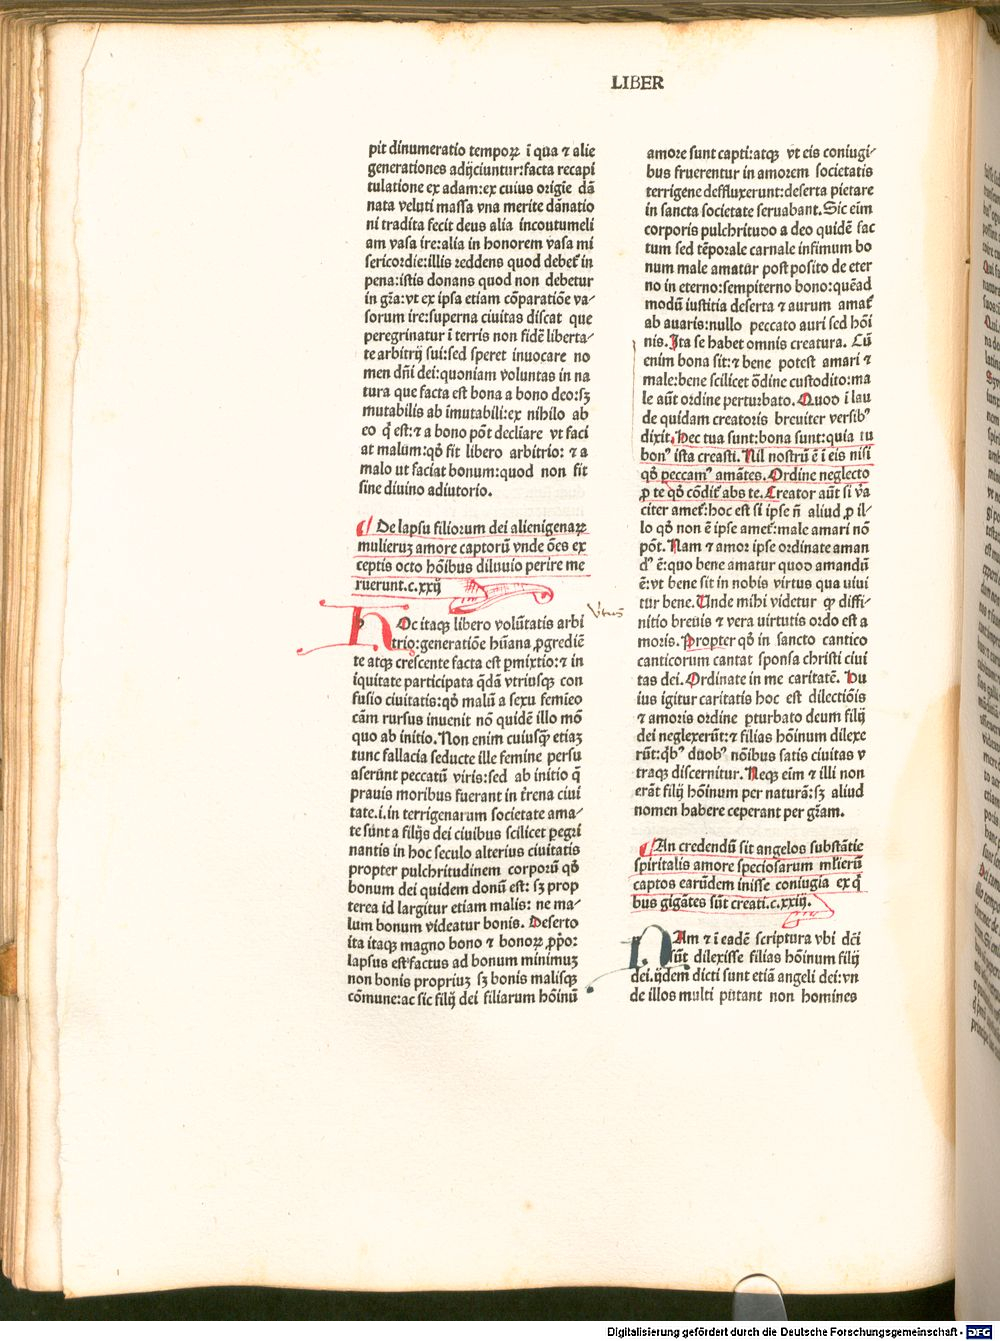 LIBER
pit dinumeratio tempoꝝ ī qua ⁊ alie
generationes adijciuntur:facta recapi
tulatione ex adam:ex cuius origīe dā
nata veluti massa vna merite dānatio
ni tradita fecit deus alia incontumeli
am vasa ire:alia in honorem vasa mi
sericordie:illis reddens quod debet᷑ in
pena:istis donans quod non debetur
in gr̄a:vt ex ipsa etiam cōparatiōe va-
sorum ire:superna ciuitas discat que
peregrinatur ī terris non fidē liberta-
te arbitrij sui:sed speret inuocare no
men dn̄i dei:quoniam voluntas in na
tura que facta est bona a bono deo:sꝫ
mutabilis ab īmutabili:ex nihilo ab
eo q̄ est:⁊ a bono pōt declīare vt faci
at malum:qḋ fit libero arbitrio: ⁊ a
malo ut faciat bonum:quod non fit
sine diuino adiutorio.
De lapsu filiorum dei alienigenaꝝ
mulieruꝫ amore captorū vnde ōēs ex
ceptis octo hōībus diluuio perire me
ruerunt.c.xxij
HOc itaqꝫ libero volūtatis arbi
trio:generatiōe hūana ꝓgrediē
te atqꝫ crescente facta est ꝑmixtio:⁊ in
iquitate participata q̄dā vtriusqꝫ con
fusio ciuitatis:qḋ malū a sexu femieo
cām rursus inuenit nō quidē illo mō
quo ab initio.Non enim cuiusꝙ̄ etiaꝫ
tunc fallacia seducte ille femine persu
aserūt peccatū viris:sed ab initio q̄
prauis moribus fuerant in t̄rena ciui
tate.i.in terrigenarum societate ama-
te sūt a filijs dei ciuibus scilicet ꝑegri
nantis in hoc seculo alterius ciuitatis
propter pulchritudinem corporū qḋ
bonum dei quidem donū est: sꝫ prop
terea id largitur etiam malis: ne ma-
lum bonum videatur bonis. Deserto
ita itaqꝫ magno bono ⁊ bonoꝝ ꝓp̄o:
lapsus est factus ad bonum minimuꝫ
non bonis propriuꝫ sꝫ bonis malisqꝫ
cōmune:ac sic filij dei filiarum hōinū
amore sunt capti:atqꝫ vt eis coniugi-
bus fruerentur in amorem societatis
terrigene deffluxerunt:deserta pietare
in sancta societate seruabant.Sic eīm
corporis pulchritudo a deo quidē fac
tum sed tēporale carnale infimum bo
num male amatur post posito de eter
no in eterno:sempiterno bono:quēad
modū iustitia deserta ⁊ aurum amat᷑
ab auaris:nullo peccato auri sed hōi
nis.Ita se habet omnis creatura. Cū
enim bona sit:⁊ bene potest amari ⁊
male:bene scilicet ōdine custodito:ma
le aūt ordine perturbato. Quod ī lau
de quidam creatoris breuiter versibꝰ
dixit.Hec tua sunt:bona sunt:quia tu
bonꝰ ista creasti. Nil nostrū ē ī eis nisi
qḋ peccamꝰ amātes. Ordine neglecto
ꝓ te qḋ cōdit᷑ abs te.Creator aūt si v̄a
citer amet᷑:hoc est si ipse n̄ aliud ꝓ il-
lo qḋ non ē ipse amet᷑:male amari nō
pōt. Nam ⁊ amor ipse ordinate aman
dꝰ ē:quo bene amatur quod amandū
ē:vt bene sit in nobis virtus qua uiui
tur bene. Unde mihi videtur ꝙ diffi-
nitio breuis ⁊ vera uirtutis ordo est a
moris. Propter qḋ in sancto cantico
canticorum cantat sponsa christi ciui
tas dei. Ordinate in me caritatē. Hu
ius igitur caritatis hoc est dilectiōis
⁊ amoris ordine ꝑturbato deum filij
dei neglexerūt:⁊ filias hōinum dilexe
rūt:q̇bꝰ duobꝰ nōibus satis ciuitas v
traqꝫ discernitur. Neqꝫ eīm ⁊ illi non
erāt filij hōinum per naturā:sꝫ aliud
nomen habere ceperant per gr̄am.
An credendū sit angelos substātie
spiritalis amore speciosarum ml̄ierū
captos earūdem inisse coniugia ex q̇
bus gigātes sūt creati.c.xxiij.
NAm ⁊ ī eadē scriptura vbi dc̄i
sūt dilexisse filias hōinum filij
dei.ijdem dicti sunt etiā angeli dei:vn
de illos multi putant non homines
Digitalisierung gefördert durch die Deutsche Forschungsgemeinschaft - DFG